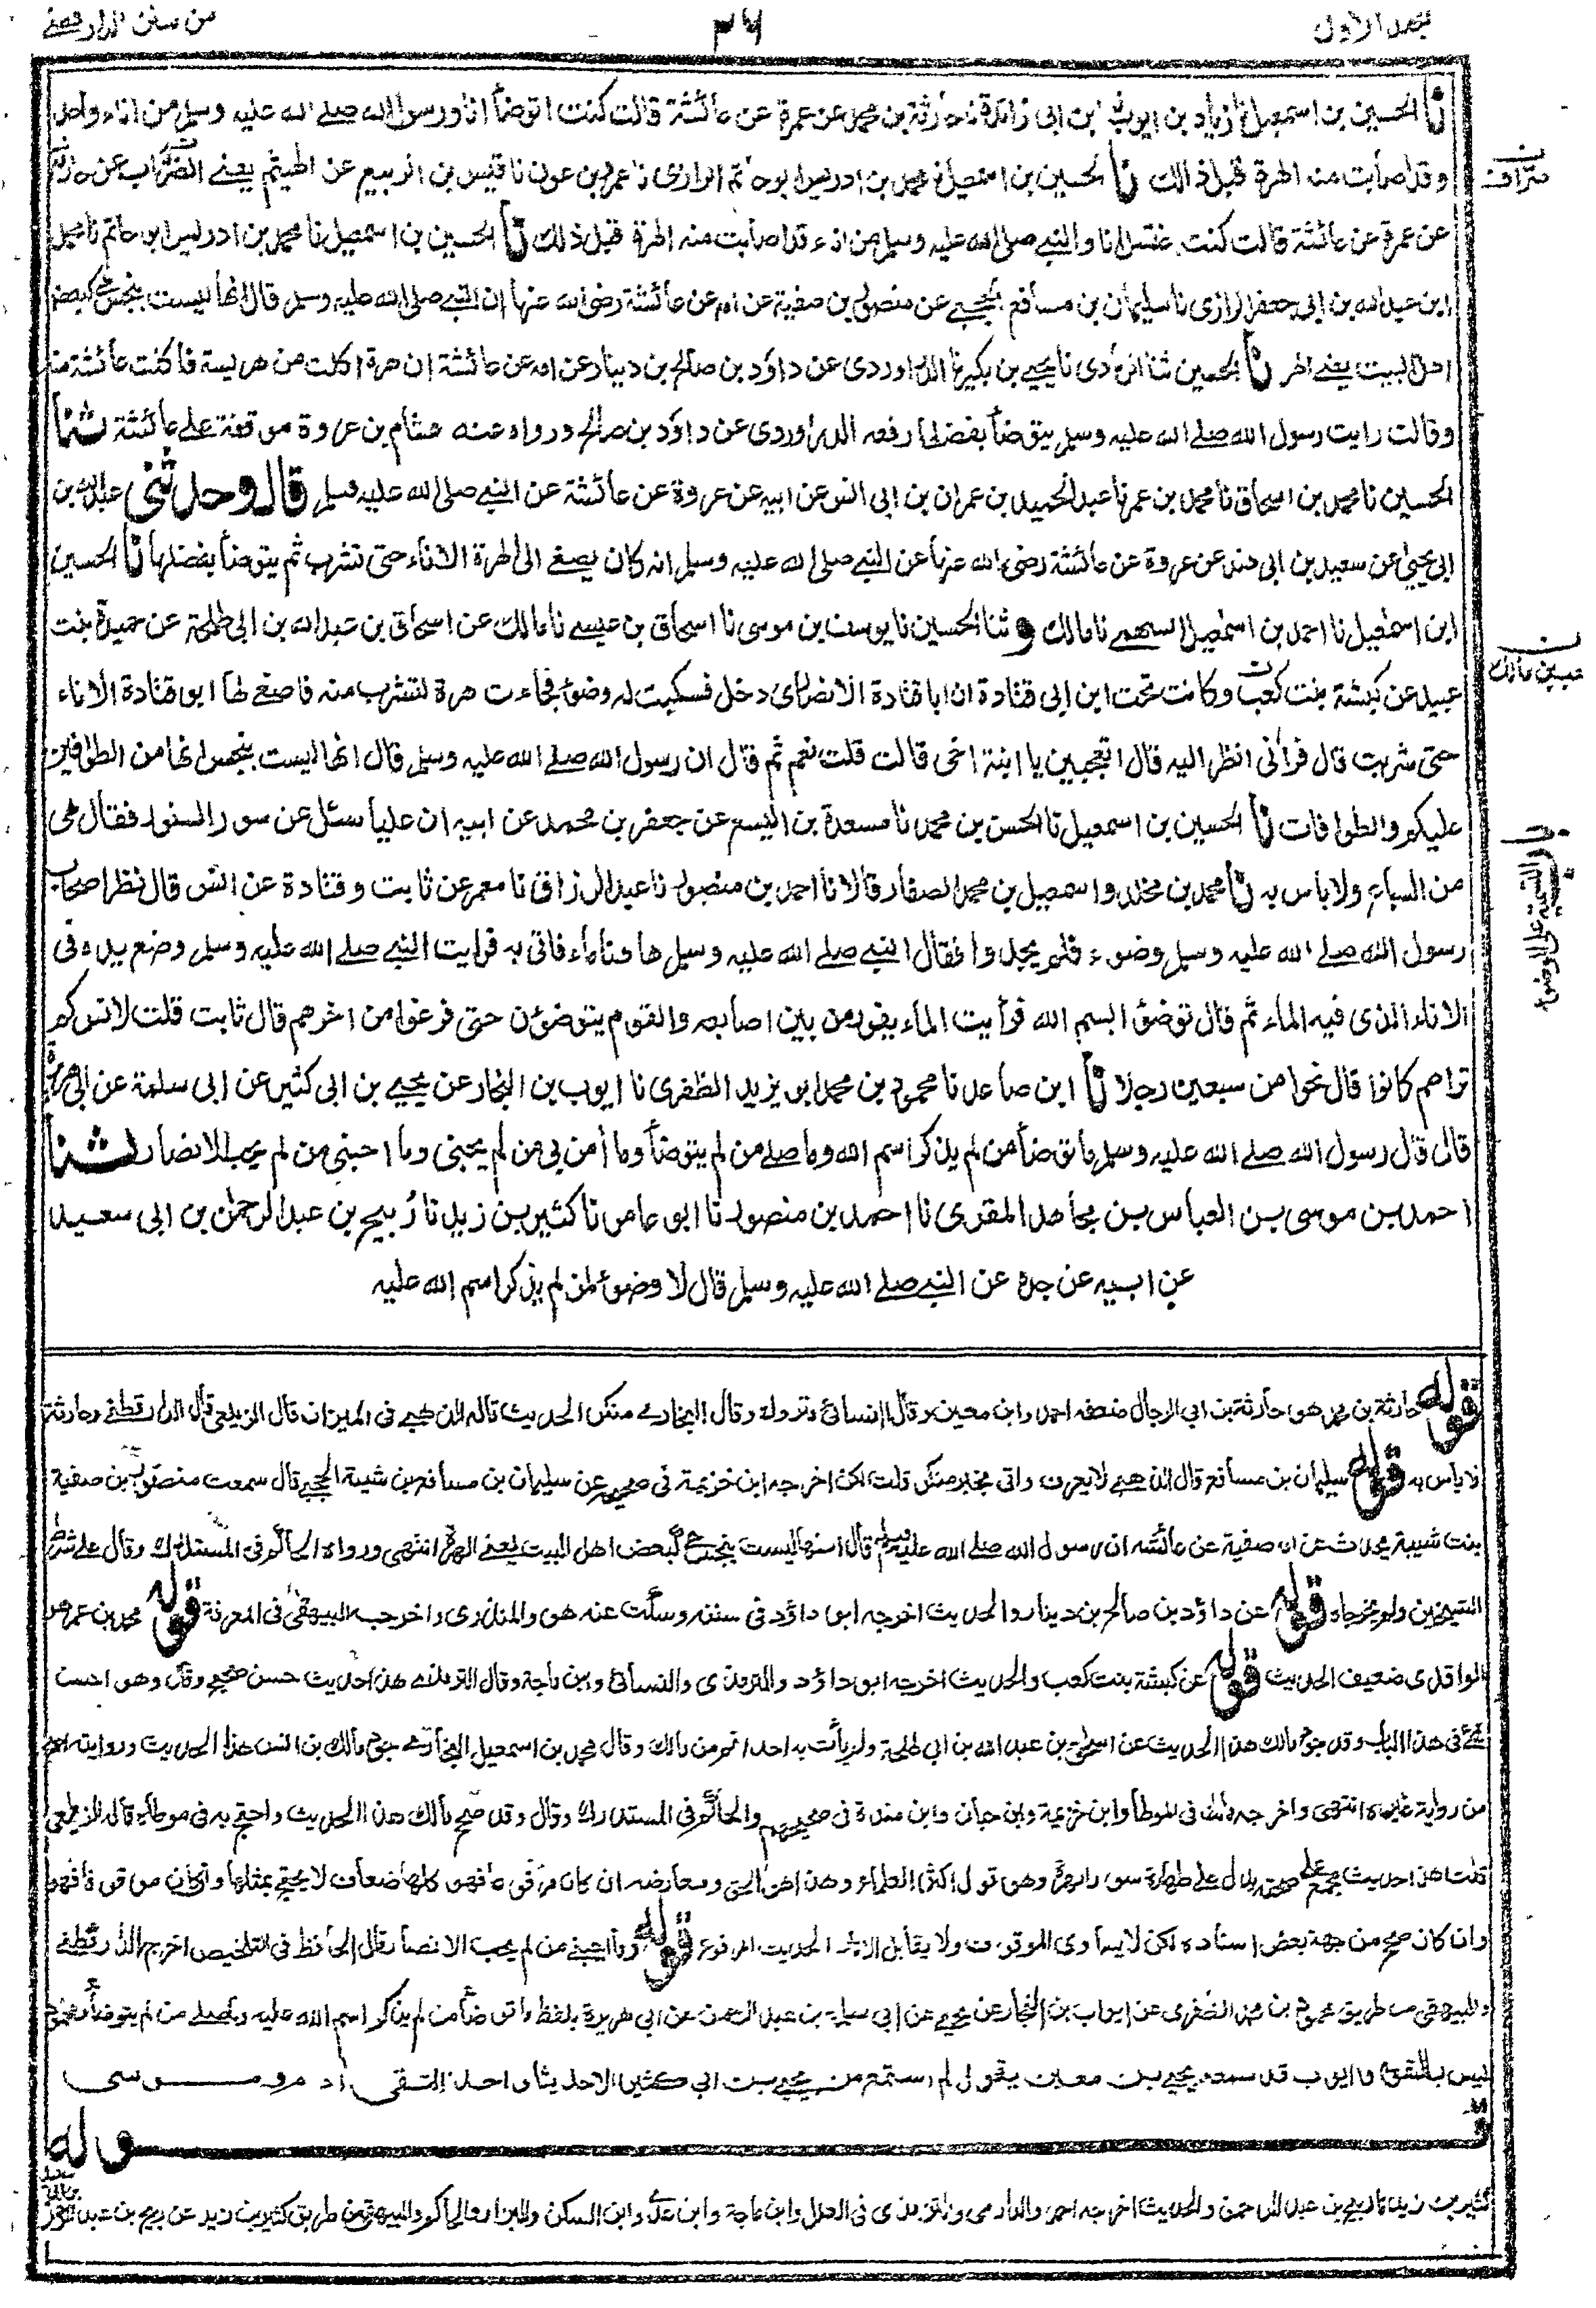 من سنن الدار قطنے
۲۶
جلد الاول
نا الحسين بن اسمعيل نا زياد بن ايوب نا ابن ابى زائدة نا حارثة بن محمد عن عمرة عن عائشة قالت كنت اتوضأ انا ورسول الله صلے الله عليه وسلم من اناء واحد
وقد اصابت منه الهرة قبل ذالك نا الحسين بن اسمعيل نا محمد بن ادريس ابو حاتم الرازى نا عمرو بن عون نا قيس بن الربيع عن الهيثم يعنے الصراف عن حارثة
صراف
عن عمرة عن عائشة قالت كنت اغتسل انا والنبے صلى الله عليه وسلم من اناء قد اصابت منه الهرة قبل ذلك نا الحسين بن اسمعيل نا محمد بن ادريس ابو حاتم نا محمد
ابن عبد الله بن ابى جعفر الرازى نا سليمان بن مسافع الحجبے عن منصور بن صفية عن امه عن عائشة رضى الله عنها ان النبے صلى الله عليه وسلم قال انها ليست بنجس هى كبعض
اهل البيت يعنے الهر نا الحسين ثنا الرمادى نا يحيے بن بكير نا الدراوردى عن داؤد بن صالح بن دينار عن امه عن عائشة ان هرة اكلت من هريسة فاكلت عائشة منها
وقالت رايت رسول الله صلے الله عليه وسلم يتوضأ بفضلها رفعه الدراوردى عن داؤد بن صالح ورواه عنه هشام بن عروة موقفة على عائشة ثنا
الحسين نا محمد بن اسحاق نا محمد بن عمر نا عبد الحميد بن عمران بن ابى انس عن ابيه عن عروة عن عائشة عن النبے صلى الله عليه وسلم قال وحدثنى عبد الله بن
ابى يحيى عن سعيد بن ابى هند عن عروة عن عائشة رضى الله عنها عن النبے صلى الله عليه وسلم انه كان يصغے الى الهرة الاناء حتى تشرب ثم يتوضأ بفضلها نا الحسين
ابن اسمعيل نا احمد بن اسمعيل السهمے نا مالك و ثنا الحسين نا يوسف بن موسى نا اسحاق بن عيسے نا مالك عن اسحاق بن عبد الله بن ابى طلحة عن حميدة بنت
عبيد عن كبشة بنت كعب وكانت تحت ابن ابى قتادة ان ابا قتادة الانصارى دخل فسكبت له وضوء فجاءت هرة لتشرب منه فاصغے لها ابو قتادة الاناء
كعب بن مالك
حتى شربت قال فرأنى انظر اليه فقال اتعجبين يا ابنة اخى قالت قلت نعم ثم قال ان رسول الله صلے الله عليه وسلم قال انها ليست بنجس انها من الطوافين
عليكم والطوافات نا الحسين بن اسمعيل نا الحسن بن محمد نا مسعدة بن اليسع عن جعفر بن محمد عن ابيه ان عليا سئل عن سور السنور فقال هى
من السباع ولا باس به نا محمد بن مخلد واسمعيل بن محمد الصفار قالا نا احمد بن منصور نا عبد الرزاق نا معمر عن ثابت وقتادة عن انس قال نظر اصحاب
باب التسمية على الوضوء
رسول الله صلے الله عليه وسلم وضوء فلم يجدوا فقال النبے صلے الله عليه وسلم هاهنا ماء فاتى به فرايت النبے صلے الله عليه وسلم وضع يده فى
الاناء الذى فيه الماء ثم قال توضؤا بسم الله فرأيت الماء يفور من بين اصابعه والقوم يتوضؤن حتى فرغوا من اخرهم قال ثابت قلت لانس كم
تراهم كانوا قال نحوا من سبعين رجلا نا ابن صاعد نا محمود بن محمد ابو يزيد الظفرى نا ايوب بن النجار عن يحيے بن ابى كثير عن ابى سلمة عن ابى هريرة
قال قال رسول الله صلے الله عليه وسلم ما توضأ من لم يذكر اسم الله وما صلے من لم يتوضأ وما أمن بى من لم يحبنى وما احبنى من لم يحب الانصار ثنا
احمد بن موسى بن العباس بن مجاهد المقرى نا احمد بن منصور نا ابو عامر نا كثير بن زيد نا ربيح بن عبد الرحمٰن بن ابى سعيد
عن ابيه عن جده عن النبے صلے الله عليه وسلم قال لا وضوء لمن لم يذكر اسم الله عليه
قوله حارثة بن محمد هو حارثة بن ابى الرجال ضعفه احمد وابن معين وقال النسائى متروك وقال البخارے منكر الحديث قاله الذهبے فى الميزان قال الزيلعى قال الدارقطنے وحارثة
لا باس به قوله سليمان بن مسافع قال الذهبے لا يعرف واتى بخبر منكر قلت لكن اخرجه ابن خزيمة فى صحيحه عن سليمان بن مسافع بن شيبة الحجبے قال سمعت منصور بن صفية
بنت شيبة يحدث عن امه صفية عن عائشة ان رسول الله صلے الله عليه وسلم قال انها ليست بنجس هى كبعض اهل البيت يعنے الهرة انتهى ورواه الحاكم فى المستدرك وقال على شرط
الشيخين ولم يخرجاه قوله عن داؤد بن صالح بن دينار والحديث اخرجه ابو داؤد فى سننه وسكت عنه هو والمنذرى واخرجه البيهقى فى المعرفة قوله محمد بن عمر هو
الواقدى ضعيف الحديث قوله عن كبشة بنت كعب والحديث اخرجه ابو داؤد والترمذى والنسائى وابن ماجة وقال الترمذے هذا حديث حسن صحيح وقال وهو احسن
شئ فى هذا الباب وقد جود مالك هذا الحديث عن اسحق بن عبد الله بن ابى طلحة ولم يأت به احد اتم من مالك وقال محمد بن اسمعيل البخارے جود مالك بن انس هذا الحديث وروايته اصح
من رواية غيره انتهى واخرجه مالك فى الموطأ وابن خزيمة وابن حبان وابن مندة فى صحيحهم والحاكم فى المستدرك وقال وقد صح مالك هذا الحديث واحتج به فى موطأه قاله الزيلعى
قلت هذا حديث مجمع على صحته يدل على طهارة سور الهرة وهو قول اكثر العلماء وهذا هو الحق ومعارضه ان كان مرفوعا فهو كلها ضعاف لا يحتج بمثلها وان كان موقوفا فهو
وان كان صح من جهة بعض اسناده لكن لا يساوى الموقوف ولا يقابل الاثر الحديث المرفوع قوله وما احبنے من لم يحب الانصار قال الحافظ فى التلخيص اخرج الدارقطنے
والبيهقى من طريق محمود بن محمد الظفرى عن ايوب بن النجار عن يحيے عن ابى سلمة بن عبد الرحمن عن ابى هريرة بلفظ ما توضأ من لم يذكر اسم الله عليه وما صلے من لم يتوضأ ومحمود
ليس بالقوى وايوب قد سمعه يحيے بن معين يقول لم اسمع من يحيے بن ابى كثير الا حديثا واحدا التقى ادم وموسى
قوله
كثير بن زيد نا ربيح بن عبد الرحمن والحديث اخرجه احمد والدارمى والترمذى فى العلل وابن ماجة وابن عدے وابن السكن والبزار والحاكم والبيهقى من طريق كثير بن زيد عن ربيح بن عبد الرحمن